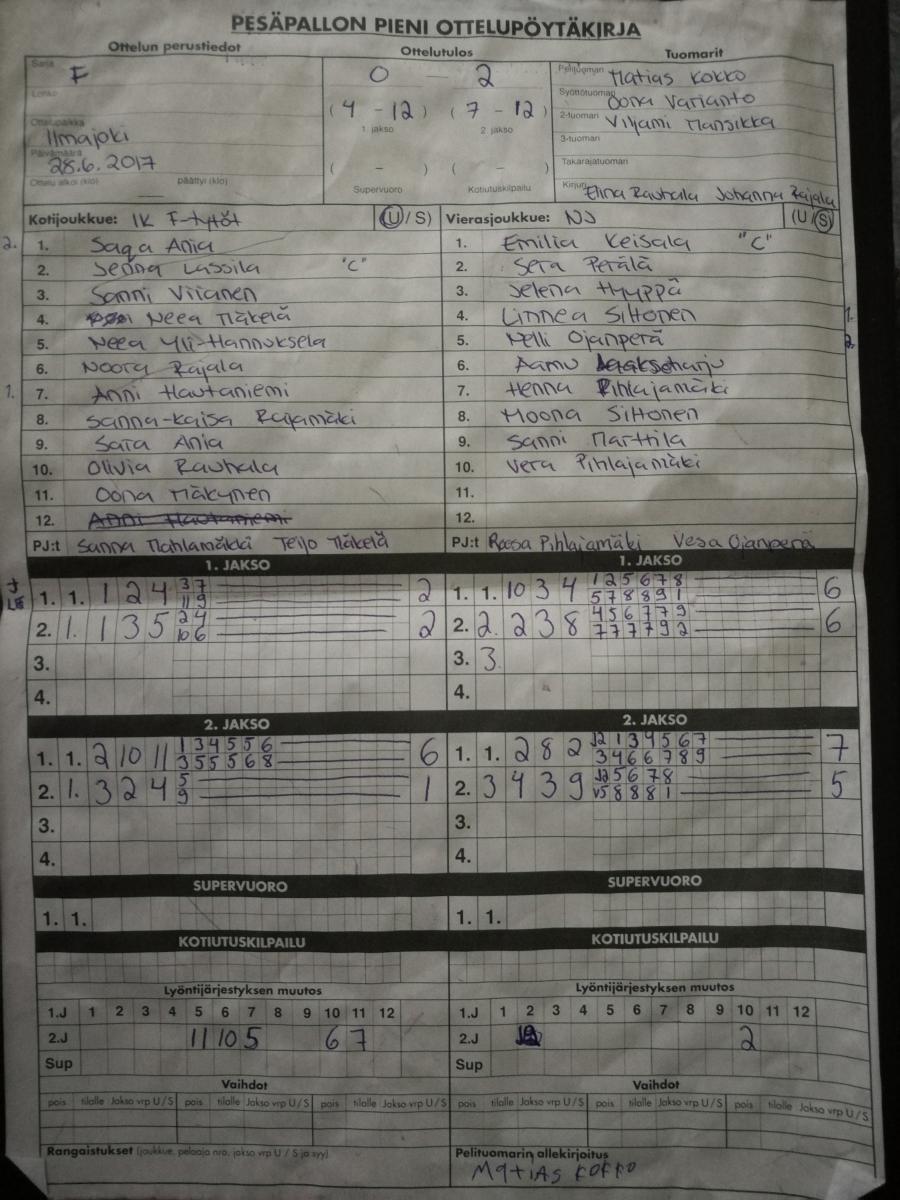 PESÄPALLON PIENI OTTELUPÖYTÄKIRJA
Ottelun perustiedot Ottelutulos Tuomarit
Sarja F 0 2 Pelituomari Matias Kokko
Lohko (4 - 12) (7 - 12) Syöttötuomari Oona Varianto
1 jakso 2 jakso 2-tuomari Viljami Mansikka
Ottelupaikka Ilmajoki 3-tuomari
Päivämäärä 28.6.2017 ( - ) ( - ) Takarajatuomari
Ottelu alkoi (klo) päättyi (klo) Supervuoro Kotiutuskilpailu Kirjuri Elina Rauhala Johanna Rajala
Kotijoukkue: IK F-tytöt (U/S) Vierasjoukkue: NJ (U/S)
2. 1. Saga Ania 1. Emilia Keisala "C"
2. Jenna Lassila "C" 2. Sera Perälä
3. Sanni Viianen 3. Jelena Hyyppä
4. Neea Mäkelä 4. Linnea Siltonen 1.
5. Neea Yli-Hannuksela 5. Nelli Ojanperä 2.
6. Noora Rajala 6. Aamu Laaksoharju
7. 1. Anni Hautaniemi 7. Henna Pihlajamäki
8. Sanna-Kaisa Rajamäki 8. Moona Siltonen
9. Sara Ania 9. Sanni Marttila
10. Olivia Rauhala 10. Vera Pihlajamäki
11. Oona Mäkynen 11.
12. Anni Hautaniemi 12.
PJ:t Sanna Mahlamäki Teijo Mäkelä PJ:t Roosa Pihlajamäki Vesa Ojanperä
1. JAKSO 1. JAKSO
1. 1. 1 2 4 3 7 2 1. 1. 10 3 4 1 2 5 6 7 8 6
11 9 5 7 8 8 9 1
2. 1. 1 3 5 2 4 2 2. 2. 2 3 8 4 5 6 7 7 9 6
10 6 7 7 7 7 9 2
3. 3. 3.
4. 4.
2. JAKSO 2. JAKSO
1. 1. 2 10 11 1 3 4 5 5 6 6 1. 1. 2 8 2 12 1 3 4 5 6 7 7
3 5 5 5 6 8 3 4 6 6 7 8 9
2. 1. 3 2 4 5 1 2. 3 4 3 9 12 5 6 7 8 5
9 5 8 8 8 1
3. 3.
4. 4.
SUPERVUORO SUPERVUORO
1. 1. 1. 1.
KOTIUTUSKILPAILU KOTIUTUSKILPAILU
Lyöntijärjestyksen muutos Lyöntijärjestyksen muutos
1.J 1 2 3 4 5 6 7 8 9 10 11 12 1.J 1 2 3 4 5 6 7 8 9 10 11 12
2.J 11 10 5 6 7 2.J 2
Sup Sup
Vaihdot Vaihdot
pois tilalle Jakso vrp U/S pois tilalle Jakso vrp U/S pois tilalle Jakso vrp U/S pois tilalle Jakso vrp U/S pois tilalle Jakso vrp U/S pois tilalle Jakso vrp U/S
Rangaistukset (joukkue, pelaaja nro, jakso vrp U / S ja syy) Pelituomarin allekirjoitus
Matias Kokko